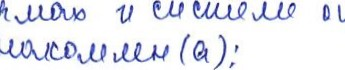 рмах и системе оп
накомлен(а);